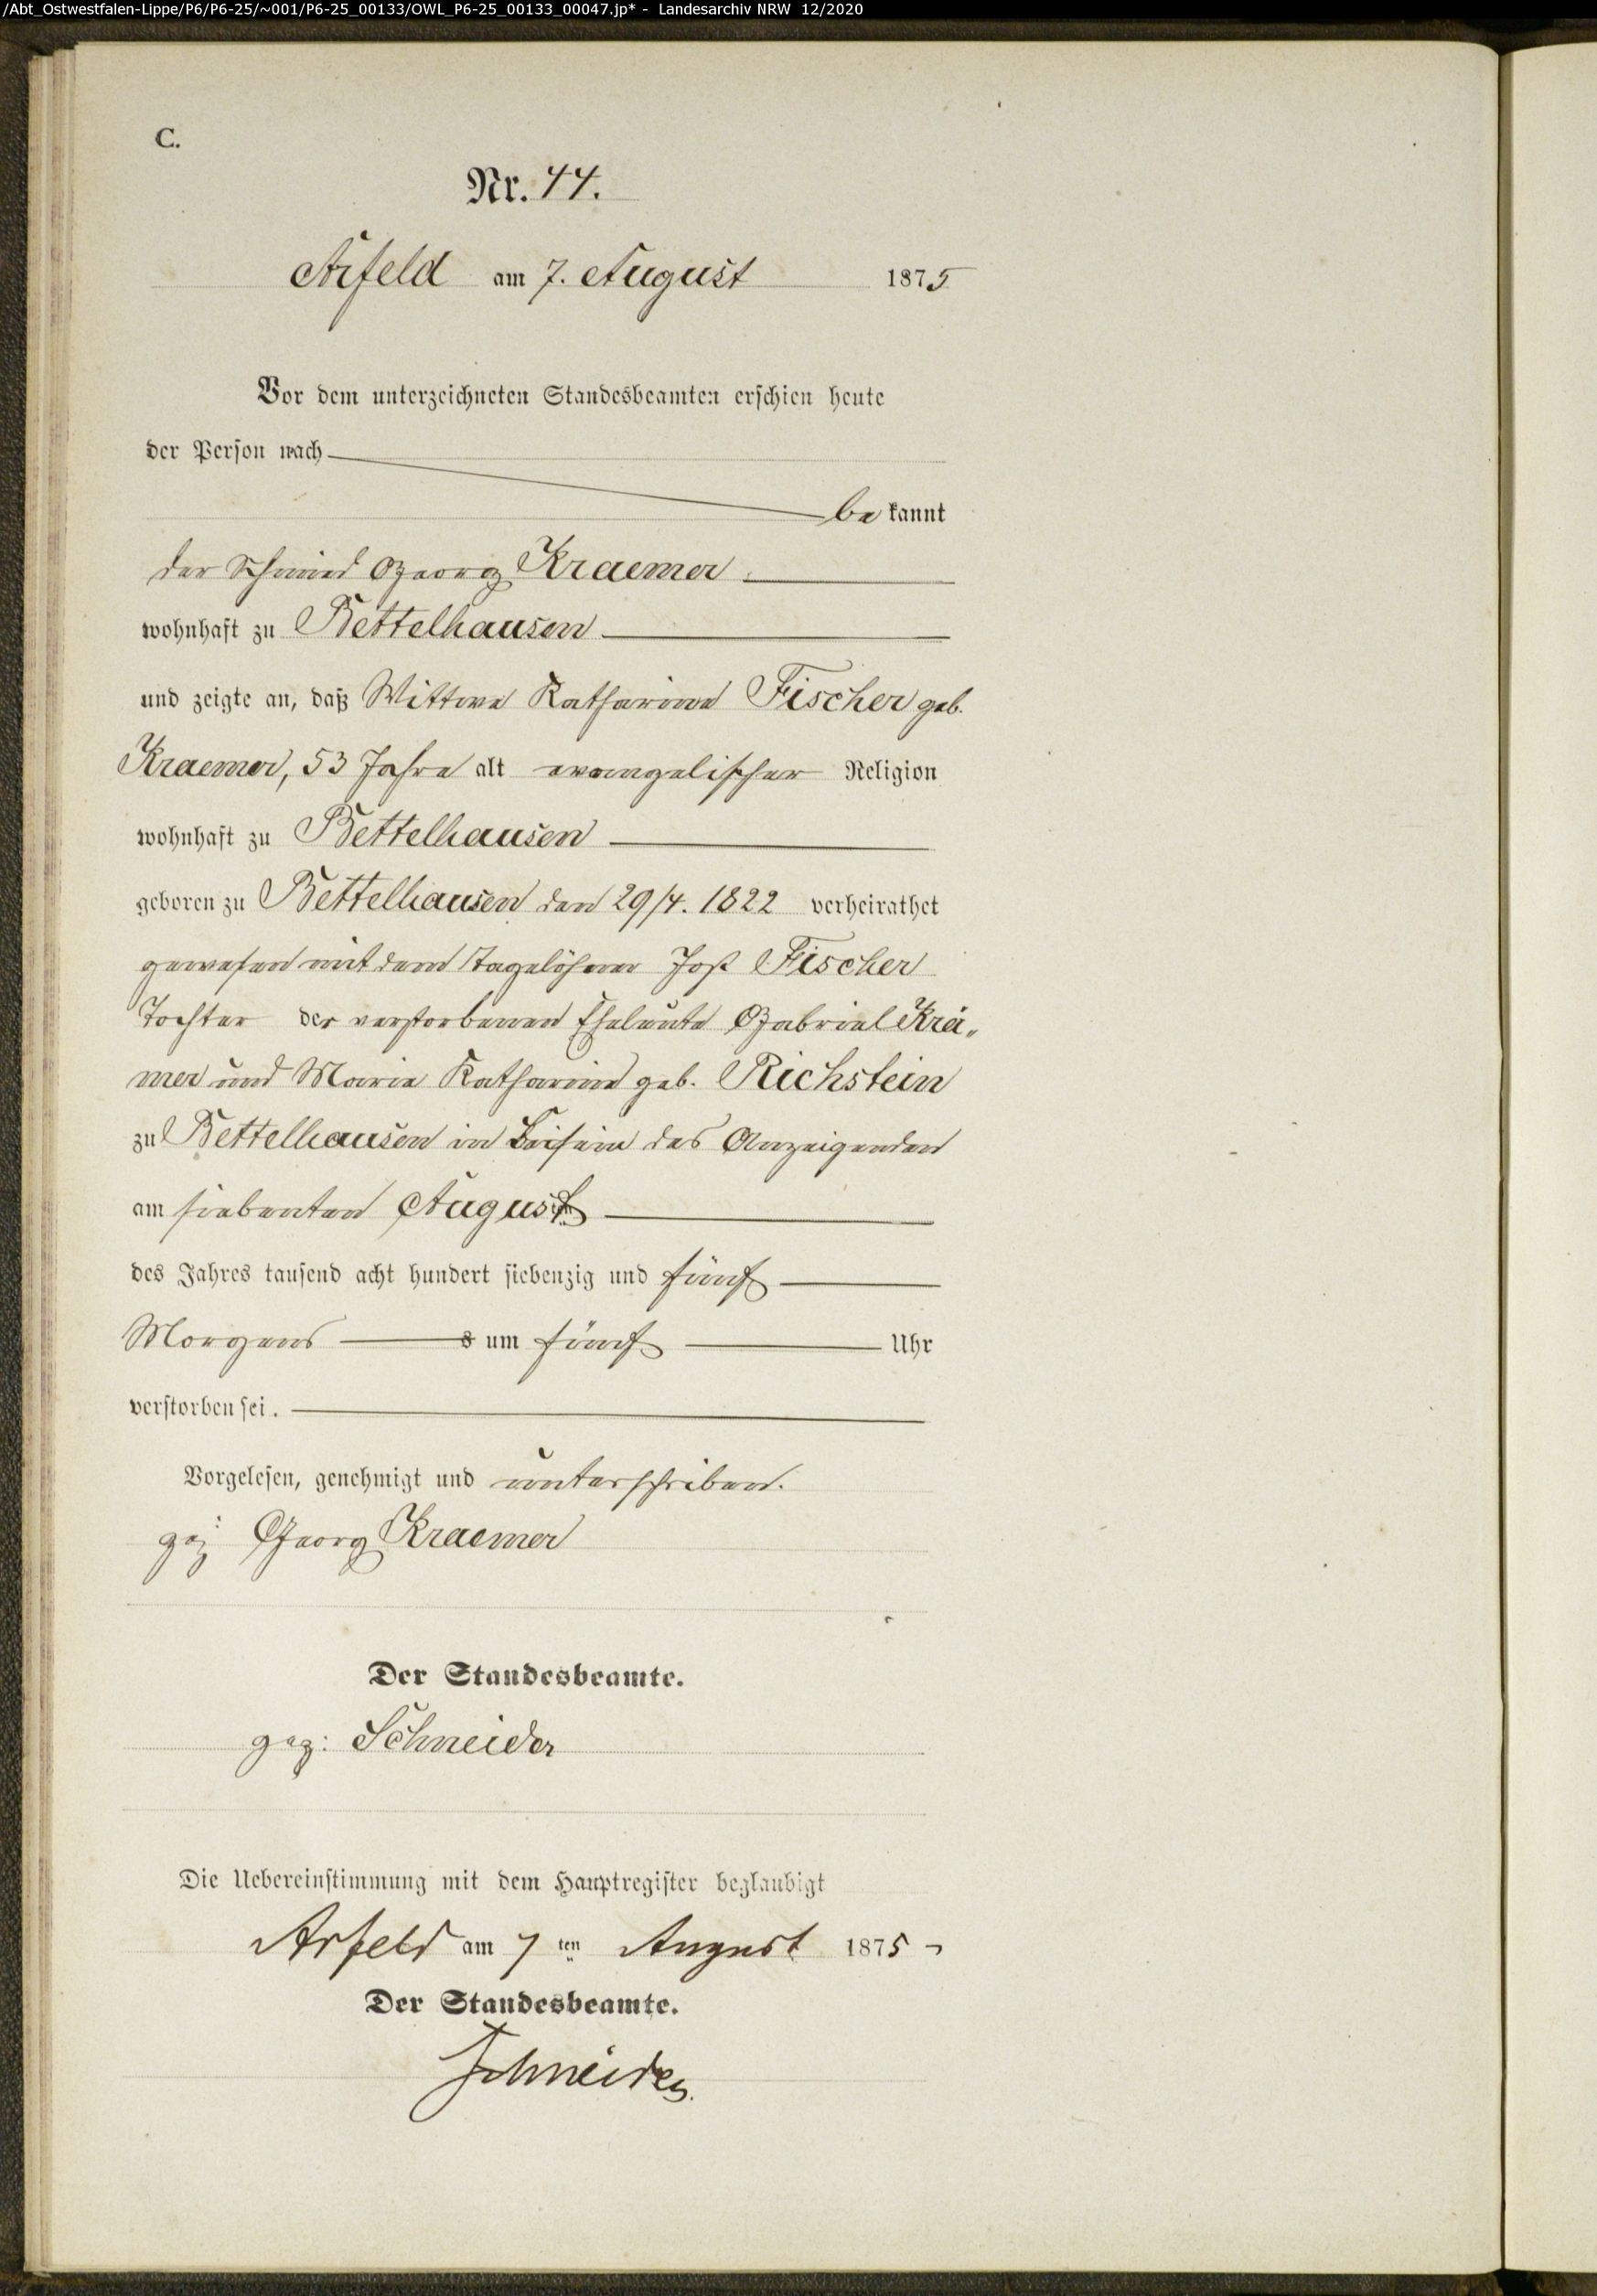 /Abt_Ostwestfalen-Lippe/P6/P6-25/~001/P6-25_00133/OWL_P6-25_00133_00047.jp* - Landesarchiv NRW 12/2020
C.
Nr. 44.
Arfeld am 7. August 1875
Vor dem unterzeichneten Standesbeamten erschien heute
der Person nach
be kannt
der Schmied Georg Kraemer
wohnhaft zu Bettelhausen
und zeigte an, daß Wittwe Katharine Fischer geb.
Kraemer, 53 Jahre alt evangelischer Religion
wohnhaft zu Bettelhausen
geboren zu Bettelhausen den 29/4. 1822 verheirathet
gewesen mit dem Tagelöhner Jost Fischer
Tochter der verstorbenen Eheleute Gabriel Krä„
mer und Marie Katharine geb. Richstein
zu Bettelhausen in Beisein des Anzeigenden
am siebenten August
des Jahres tausend acht hundert siebenzig und fünf
Morgens s um fünf Uhr
verstorben sei.
Vorgelesen, genehmigt und unterschriben.
gez: Georg Kraemer
Der Standesbeamte.
gez: Schneider
Die Uebereinstimmung mit dem Hauptregister beglaubigt
Arfeld am 7 ten August 1875
Der Standesbeamte.
Schneider